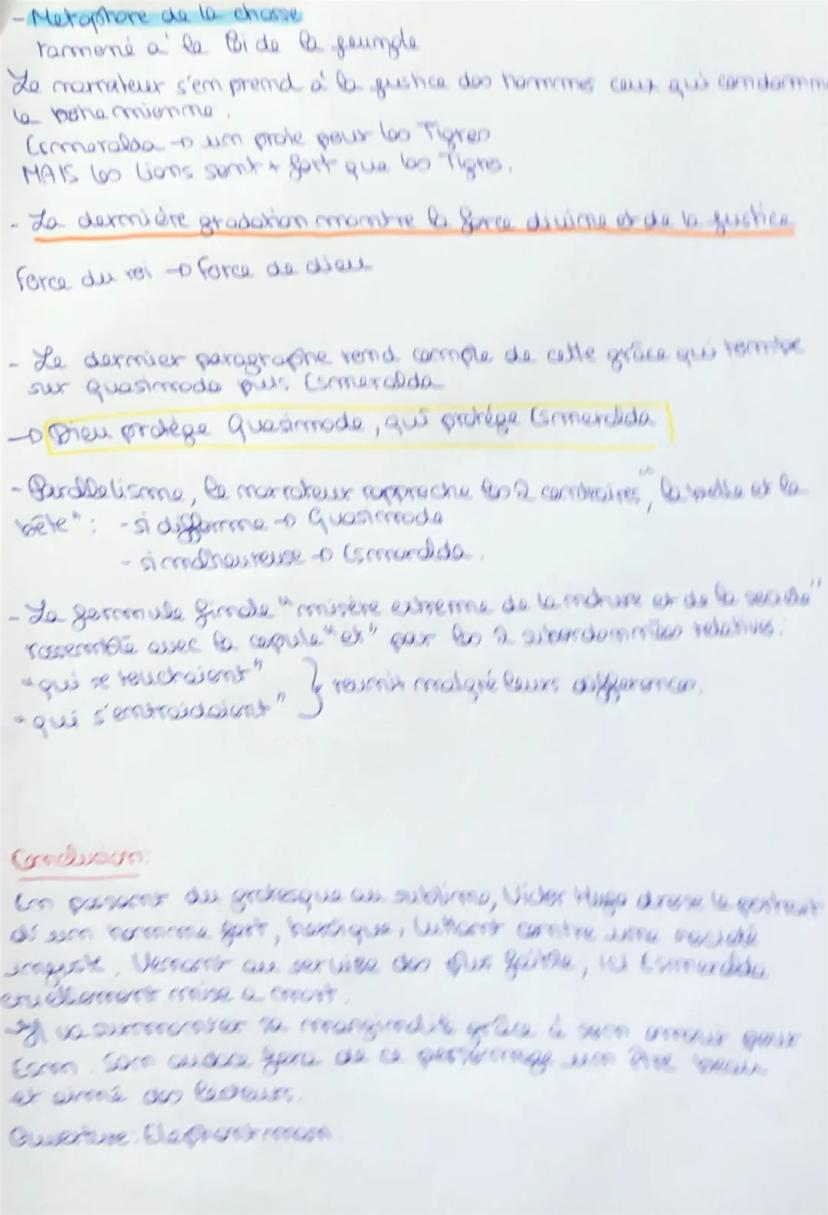 - Metaphore de la chasse
ramené à la loi de la jeungle
Le narrateur s'en prend à la justice des hommes ceux qui condamne
la bohemienne.
Esmeralda → un proie pour les Tigres
MAIS les lions sont + fort que les Tigres.
- La dernière gradation montre la force divine et de la justice
force du roi → force de dieu
- Le dernier paragraphe rend compte de cette grâce qui tombe
sur quasimodo puis Esmeralda
→ Dieu protège Quasimodo, qui protége Esmeralda
- Parallelisme, le narrateur rapproche les 2 contraires, "la belle et la
bête": - si difforme → Quasimodo
- si malheureuse → Esmeralda.
- La formule finale "misère extreme de la nature et de la société"
rassemblé avec la copule "et" par les 2 subordonnées relatives:
"qui se touchaient"
"qui s'entraidaient" } reunit malgré leurs differences.
Conclusion:
En passant du grotesque au sublime, Victor Hugo dresse le portrait
d' un homme fort, héroïque, luttant contre une société
injuste. Venant au service des plus faible, ici Esmeralda
cruellement mise a mort.
Il va surmonter sa marginalité grâce à son amour pour
Esm. Son audace fera de ce personnage un être beau
et aimé des lecteurs.
Ouverture: